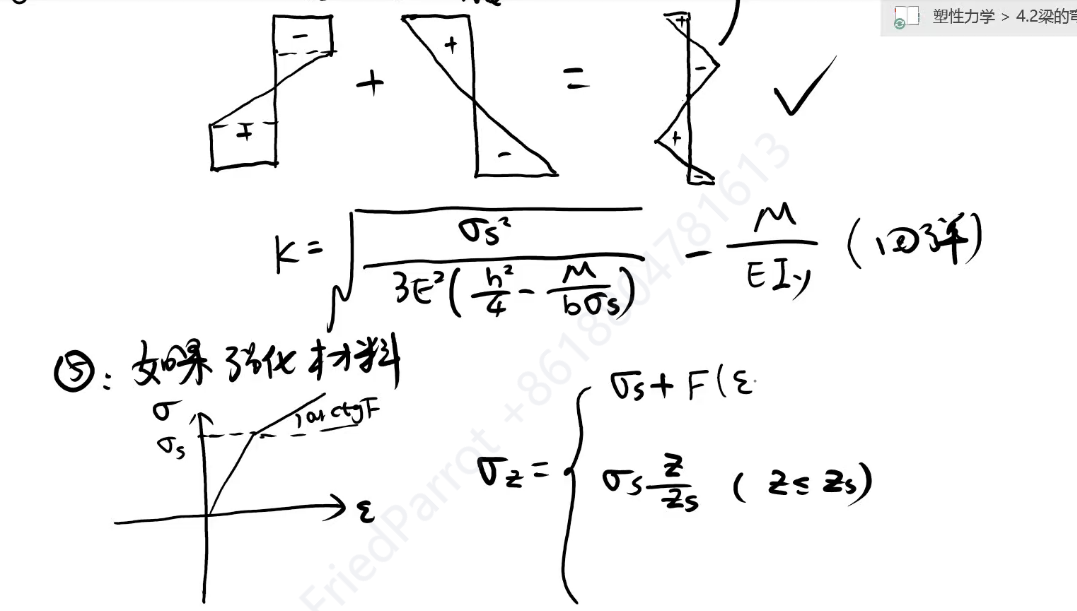 塑性力学 > 4.2梁的弯
- + + + - = + - + -
K = √(σs² / 3E²(h²/4 - M/bσs)) - M/EIy (回弹)
⑤: 如果强化材料
σ
σs
arctgF
ε
σz = { σs + F(ε
σs z/zs ( z ≤ zs)
FriedParrot +8618604781613